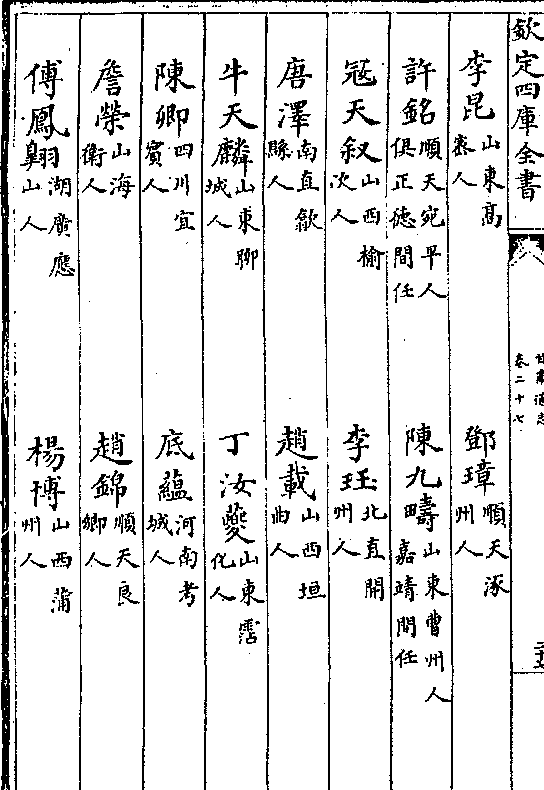 欽定四庫全書
甘肅通志
卷二十七
李昆山東高密人 鄧璋順天涿州人
許銘順天宛平人俱正德間任 陳九疇山東曹州人嘉靖間任
冦天叙山西榆次人 李珏北直開州人
唐澤南直歙縣人 趙載山西垣曲人
牛天麟山東聊城人 丁汝夔山東霑化人
陳卿四川宜賓人 底蘊河南考城人
詹榮山海衛人 趙錦順天良鄉人
傅鳳翱湖廣應山人 楊博山西蒲州人